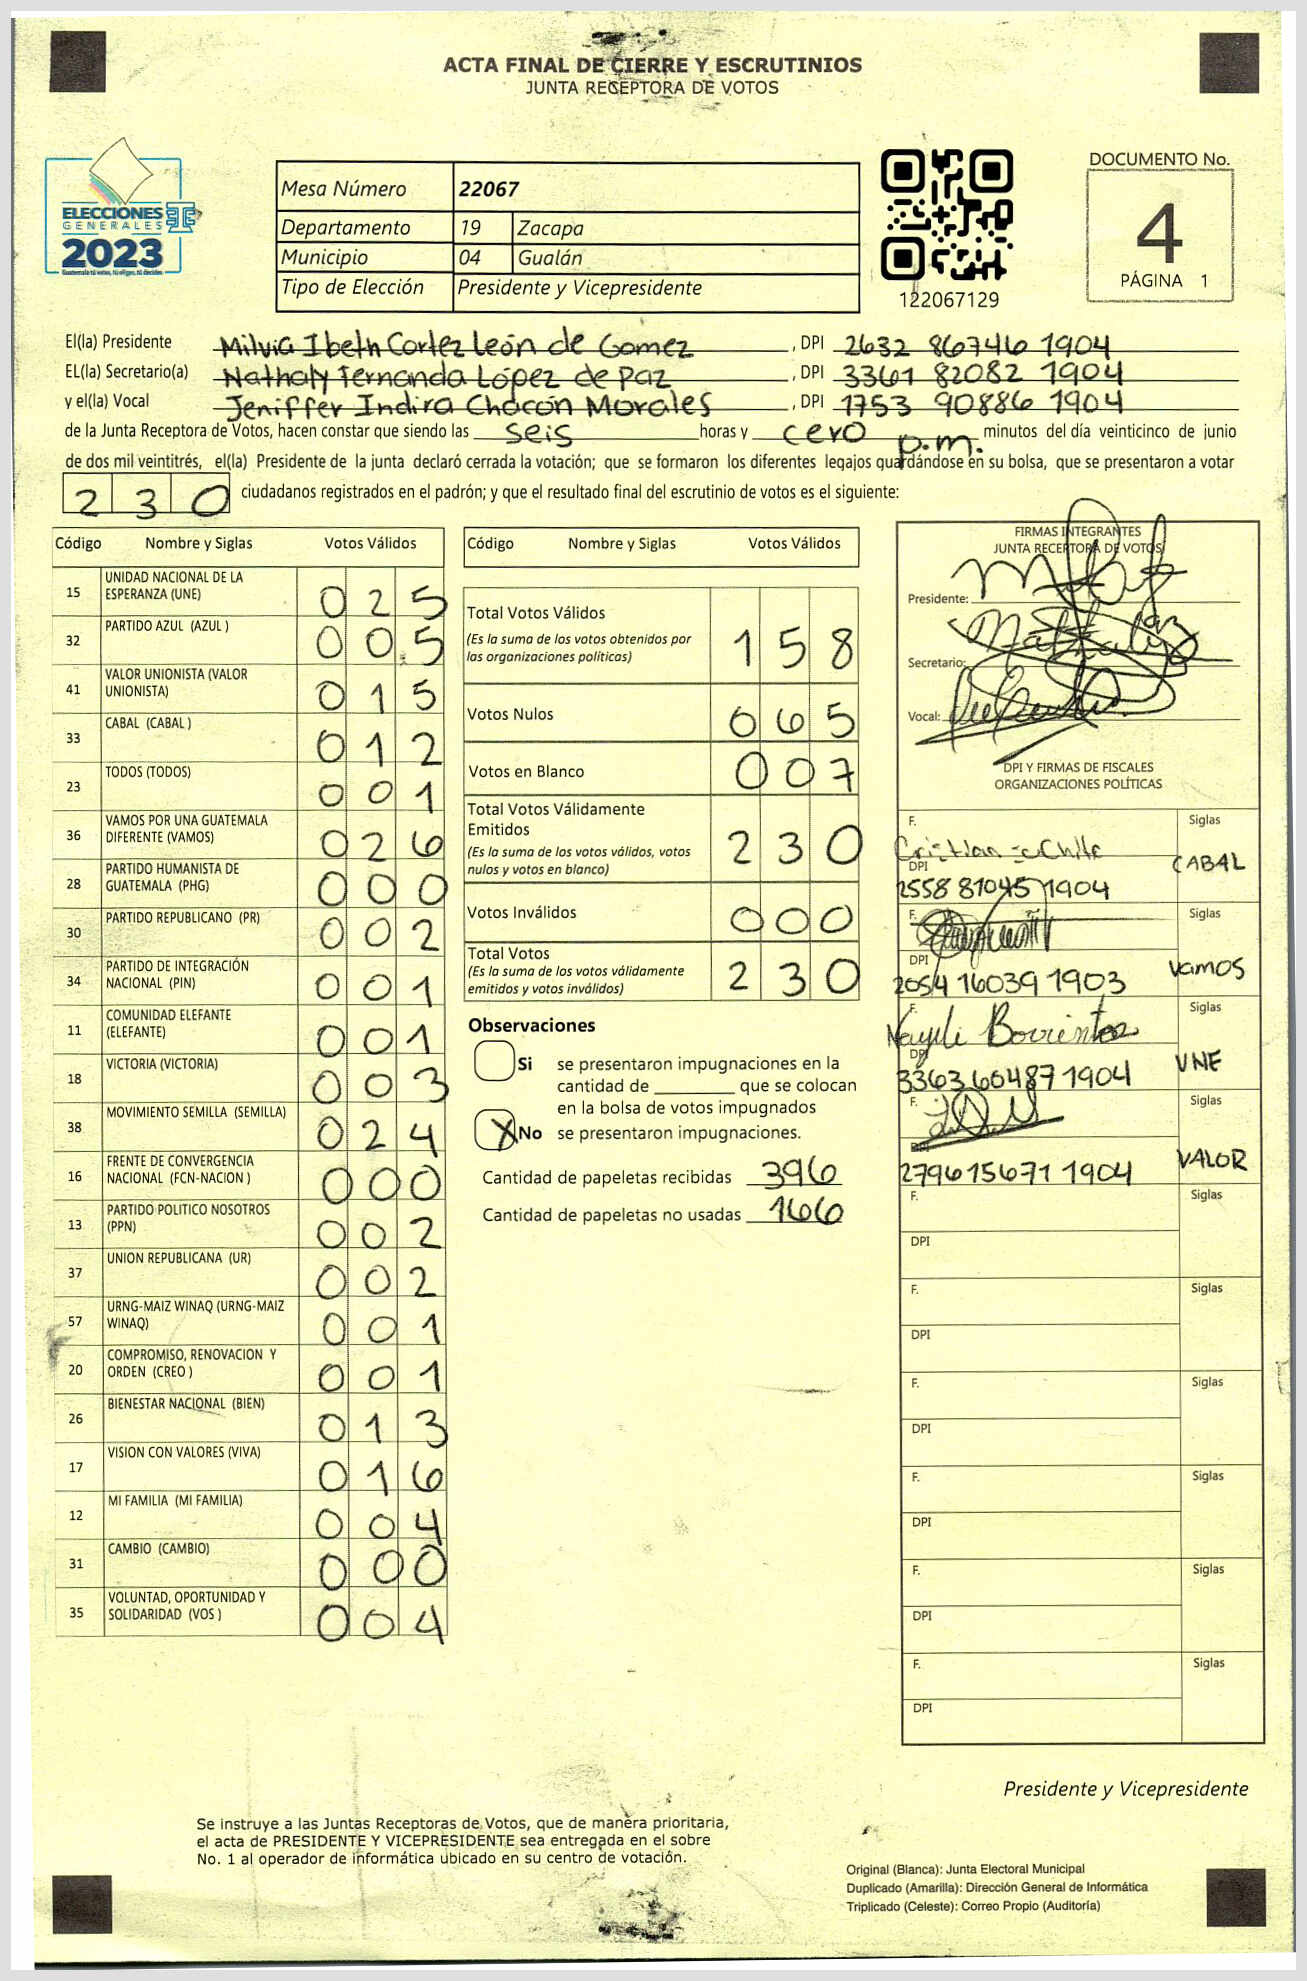 ACTA FINAL DE CIERRE Y ESCRUTINIOS
JUNTA RECEPTORA DE VOTOS
ELECCIONES
GENERALES
2023
Guatemala tú votas, tú eliges, tú decides
Mesa Número 22067
Departamento 19 Zacapa
Municipio 04 Gualán
Tipo de Elección Presidente y Vicepresidente
122067129
DOCUMENTO No.
4
PÁGINA 1
El(la) Presidente Milvia Ibeth Cortez León de Gomez, DPI 2632 86746 1904
EL(la) Secretario(a) Nathaly Fernanda López de Paz, DPI 3361 82082 1904
y el(la) Vocal Jeniffer Indira Chacón Morales, DPI 1753 90886 1904
de la Junta Receptora de Votos, hacen constar que siendo las seis horas y cero p.m. minutos del día veinticinco de junio
de dos mil veintitrés, el(la) Presidente de la junta declaró cerrada la votación; que se formaron los diferentes legajos guardándose en su bolsa, que se presentaron a votar
230 ciudadanos registrados en el padrón; y que el resultado final del escrutinio de votos es el siguiente:
Código Nombre y Siglas Votos Válidos
15 UNIDAD NACIONAL DE LA ESPERANZA (UNE) 025
32 PARTIDO AZUL (AZUL ) 005
41 VALOR UNIONISTA (VALOR UNIONISTA) 015
33 CABAL (CABAL ) 012
23 TODOS (TODOS) 001
36 VAMOS POR UNA GUATEMALA DIFERENTE (VAMOS) 026
28 PARTIDO HUMANISTA DE GUATEMALA (PHG) 000
30 PARTIDO REPUBLICANO (PR) 002
34 PARTIDO DE INTEGRACIÓN NACIONAL (PIN) 001
11 COMUNIDAD ELEFANTE (ELEFANTE) 001
18 VICTORIA (VICTORIA) 003
38 MOVIMIENTO SEMILLA (SEMILLA) 024
16 FRENTE DE CONVERGENCIA NACIONAL (FCN-NACION ) 000
13 PARTIDO POLITICO NOSOTROS (PPN) 002
37 UNION REPUBLICANA (UR) 002
57 URNG-MAIZ WINAQ (URNG-MAIZ WINAQ) 001
20 COMPROMISO, RENOVACION Y ORDEN (CREO ) 001
26 BIENESTAR NACIONAL (BIEN) 013
17 VISION CON VALORES (VIVA) 016
12 MI FAMILIA (MI FAMILIA) 004
31 CAMBIO (CAMBIO) 000
35 VOLUNTAD, OPORTUNIDAD Y SOLIDARIDAD (VOS ) 004
Código Nombre y Siglas Votos Válidos
Total Votos Válidos 158
(Es la suma de los votos obtenidos por
las organizaciones políticas)
Votos Nulos 065
Votos en Blanco 007
Total Votos Válidamente
Emitidos 230
(Es la suma de los votos válidos, votos
nulos y votos en blanco)
Votos Inválidos 000
Total Votos 230
(Es la suma de los votos válidamente
emitidos y votos inválidos)
Observaciones
Si se presentaron impugnaciones en la
cantidad de ________ que se colocan
en la bolsa de votos impugnados
X No se presentaron impugnaciones.
Cantidad de papeletas recibidas 396
Cantidad de papeletas no usadas 166
FIRMAS INTEGRANTES
JUNTA RECEPTORA DE VOTOS
Presidente:
Secretario:
Vocal:
DPI Y FIRMAS DE FISCALES
ORGANIZACIONES POLÍTICAS
F. Siglas
Cristian CABAL
DPI
2558 81045 1904
F. Siglas
DPI Vamos
2054 16039 1903
F. Siglas
Nayeli Barrientos
DPI UNE
3363 60487 1904
F. Siglas
DPI VALOR
2796 15671 1904
F. Siglas
DPI
F. Siglas
DPI
F. Siglas
DPI
F. Siglas
DPI
F. Siglas
DPI
F. Siglas
DPI
Presidente y Vicepresidente
Se instruye a las Juntas Receptoras de Votos, que de manera prioritaria,
el acta de PRESIDENTE Y VICEPRESIDENTE sea entregada en el sobre
No. 1 al operador de informática ubicado en su centro de votación.
Original (Blanca): Junta Electoral Municipal
Duplicado (Amarilla): Dirección General de Informática
Triplicado (Celeste): Correo Propio (Auditoría)